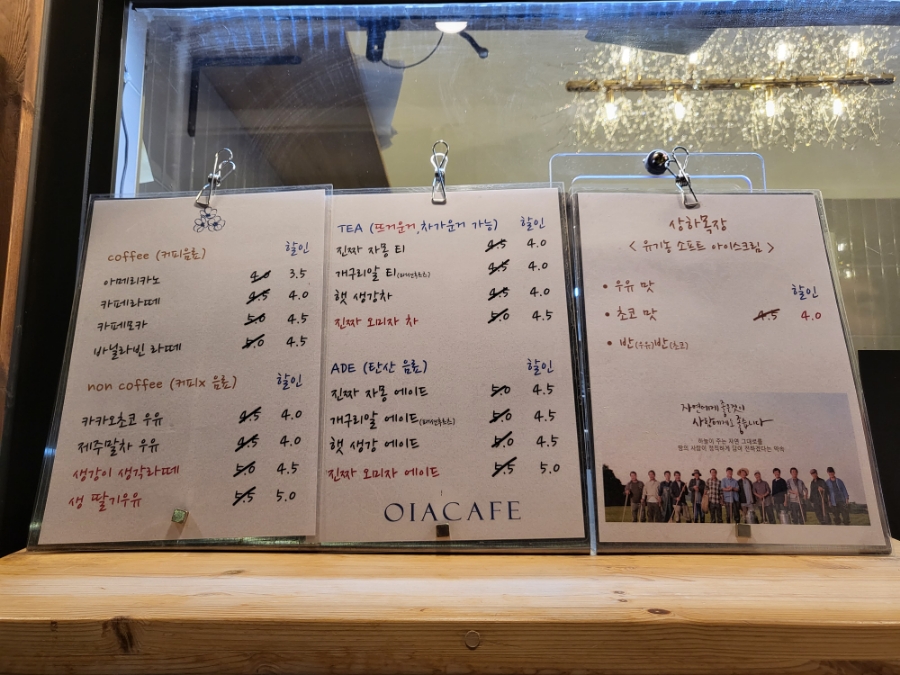 coffee (커피음료) 할인
아메리카노 4.0 3.5
카페라떼 4.5 4.0
카페모카 5.0 4.5
바닐라빈 라떼 5.0 4.5
non coffee (커피x 음료) 할인
카카오초코 우유 4.5 4.0
제주말차 우유 4.5 4.0
생강이 생각라떼 5.0 4.5
생 딸기우유 5.5 5.0
TEA (뜨거운거,차가운거 가능) 할인
진짜 자몽 티 4.5 4.0
개구리알 티(패션후르츠) 4.5 4.0
햇 생강차 4.5 4.0
진짜 오미자 차 5.0 4.5
ADE (탄산 음료) 할인
진짜 자몽 에이드 5.0 4.5
개구리알 에이드(패션후르츠) 5.0 4.5
햇 생강 에이드 5.0 4.5
진짜 오미자 에이드 5.5 5.0
OIACAFE
상하목장
< 유기농 소프트 아이스크림 >
• 우유 맛
할인
• 초코 맛 4.5 4.0
• 반(우유)반(초코)
자연에게 좋은것이
사람에게도 좋습니다
하늘이 주는 자연 그대로를
땅의 사람이 정직하게 담아 전하겠다는 약속